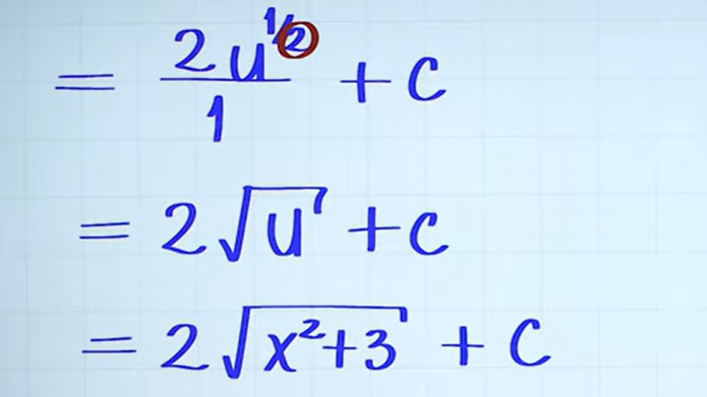 = 2u^(1/2)/1 + C
= 2√u + C
= 2√(x²+3) + C